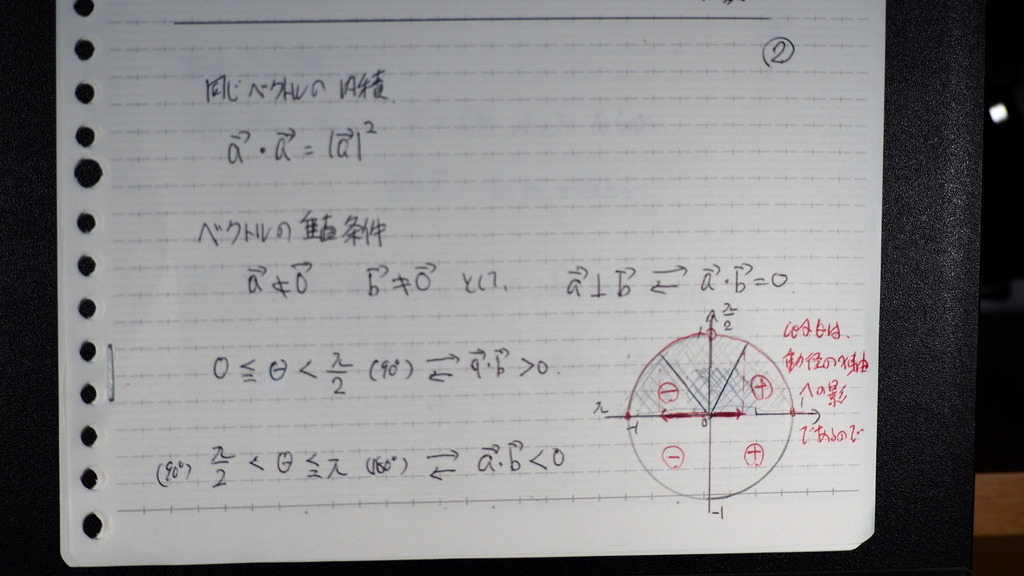 ②
同じベクトルの内積
a⃗・a⃗ = |a⃗|²
ベクトルの垂直条件
a⃗ ≠ 0⃗  b⃗ ≠ 0⃗ として、 a⃗ ⊥ b⃗ ⇄ a⃗・b⃗ = 0.
0 ≦ θ < π/2 (90°) ⇄ a⃗・b⃗ > 0.
(90°) π/2 < θ ≦ π (180°) ⇄ a⃗・b⃗ < 0
π/2
1
⊖ ⊕
π -1 0 1
⊖ ⊕
-1
cosθは、
動径のx軸
への影
であるので